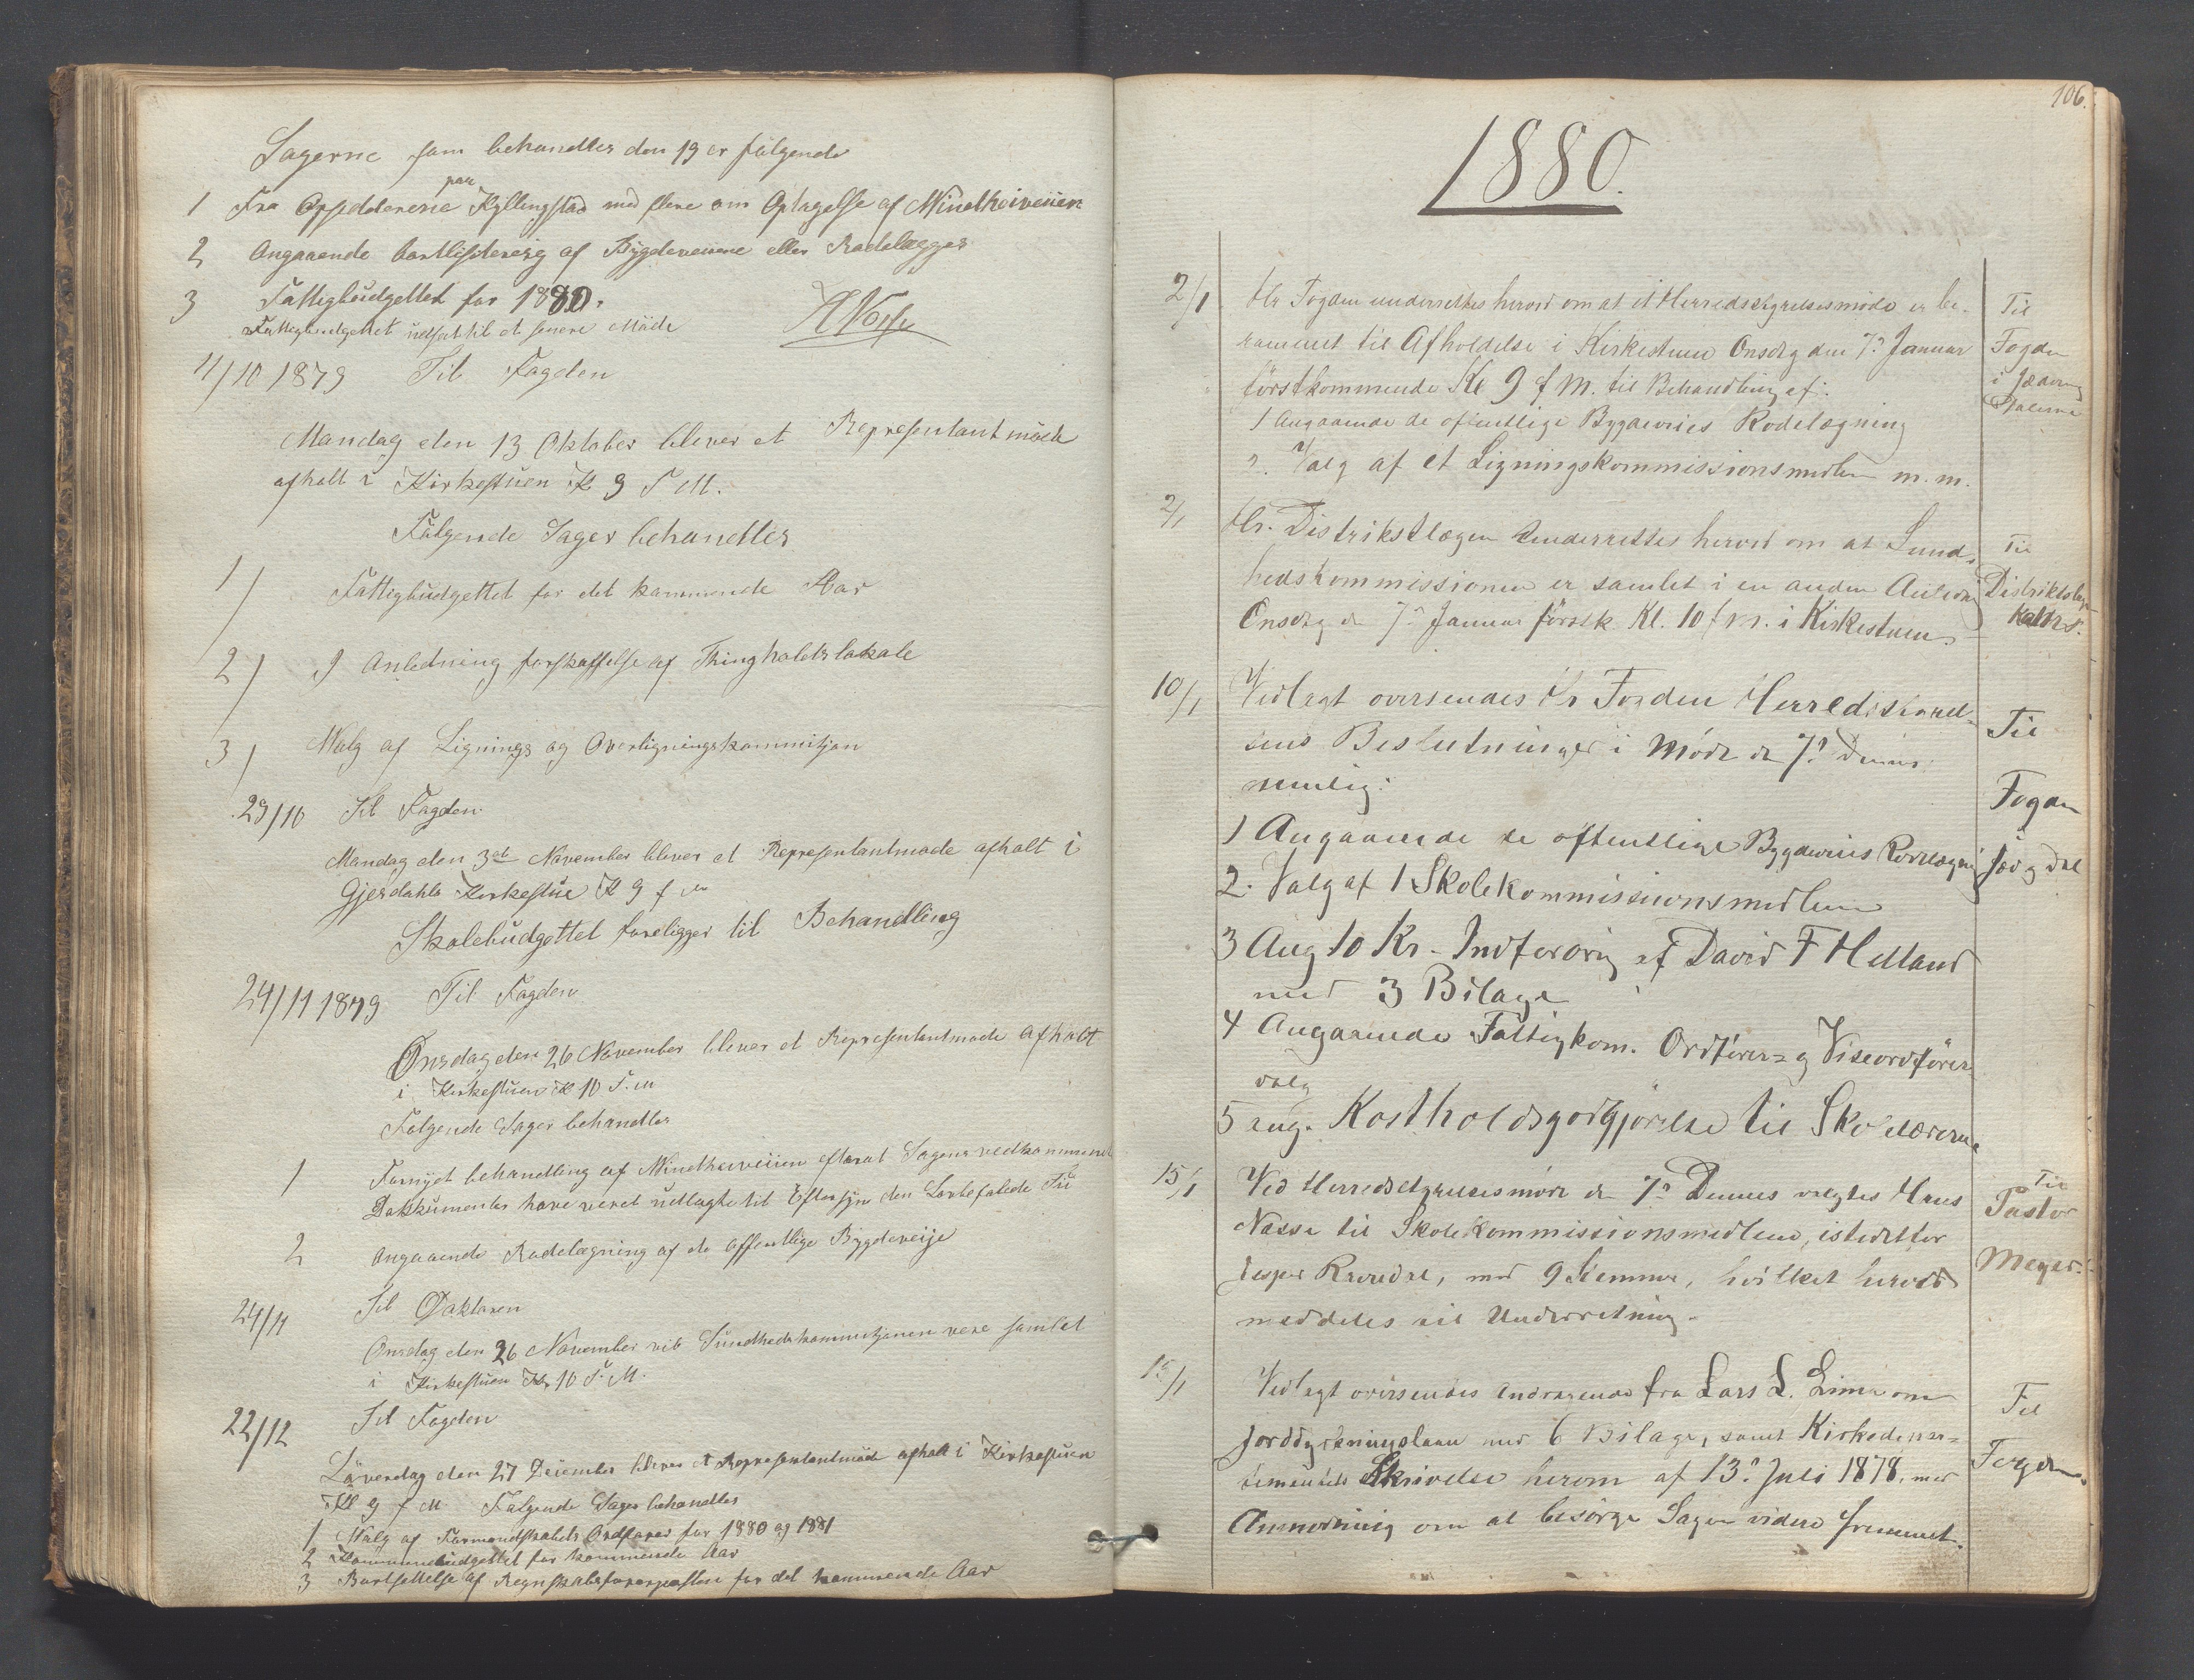 Sagerne som behandles den 19 er følgende
1 Fra Opsidderene paa Kyllingstad med flere om Optagelse af Mineltheiveiien
2 Angaaende bortlisitering af Bygdeveiene eller Rodelægges
3 Fattigbudgettet for 1880.
Fattigbudgettet udsat til et senere Møde
11/10 1879 Til Fogden
Mandag den 13 Oktober bliver et Representantmøde
afholt i Kirkestuen K 9 F M.
Følgende Sager behandles
1/ Fattigbudgettet for det kommende Aar
2/ I Anledning forskaffelse af Thingholdslokale
3/ Walg af Lignings og Overligningskommitjon
29/10 Til Fogden
Mandag den 3de November bliver et Representantmøde afholt i
Gjesdahls Kirkestue K 9 f m
Skolebudgettet foreligger til Behandling
24/11 1879 Til Fogden
Onsdag den 26 November bliver et Representantmøde afholt
i Kirkestuen K 10 F. M
Følgende Sager behandles
1 Fornyet behandling af Mineltheiveiien efterat Sagens vedkommende
Dokkumenter have været udlagte til Eftersyn den Lovbefalede Tid
2 Angaaende Rodelægning af de offentlige Bygdeveije
24/11 Til Doktoren
Onsdag den 26 November vil Sundhedskommitjonen være samlet
i Kirkestuen Kl 10 F. M.
22/12 Til Fogden
Løverdag den 27 December bliver et Representantmøde afholt i Kirkestuen
Kl 9 f M Følgende Sager behandles
1 Walg af Formandskabets Ordfører for 1880 og 1881
2 Kommunebudgettet for kommende Aar
3 Bortsettelse af Regnskabsførerposten for det kommende Aar
106.
1880.
2/1 Hr Fogden underrettes herved om at et Herredsstyrelsesmøde er be-
rammet til Afholdelse i Kirkestuen Onsdag den 7de Januar
førstkommende Kl 9 f M. til Behandling af:
1 Angaaende de offentlige Bygdeveies Rodelægning
2. Valg af et Ligningskommissionsmedlem m. m.
Til
Fogden
i Jæderen og
Dalerne
2/1 Hr. Distriktslægen underrettes herved om at Sund-
hedskommissionen er samlet i en anden Anledn
Onsdag d 7de Januar førstk. Kl. 10 f m. i Kirkestuen.
Til
Distriktslæge
10/1 Vedlagt oversendes Hr Fogden Herredsstyrel-
sens Beslutninger i Møde d 7de Dennes
nemlig:
1 Angaaende de offentlige Bygdeveies Rodelægning
2. Valg af 1 Skolekommissionsmedlem
3 Ang 10 Kr. Indfordring af David F Helland
med 3 Bilage
4 Angaaende Fattigkom. Ordfører- og Viseordfører-
valg
5 ang. Kostholdsgodtgjørelse til Skolelærerne
Til
Fogden
i Jæd og Dal
15/1 Ved Herredsstyrelsesmøde d 7de Dennes valgtes Hans
Nasse til Skolekommissionsmedlem, istedetfor
Jesper Ravndal, med 9 Stemmer, hvilket herved
meddeles til Underretning.
Til
Pastor
Meyer.
15/1 Vedlagt oversendes Andragende fra Lars L. Lima om
Jorddyrkningslaan med 6 Bilage, samt Kirkedepar-
tementets Skrivelse herom af 13de Juli 1878, med
Anmodning om at besørge Sagen videre fremmet.
Til
Fogden.